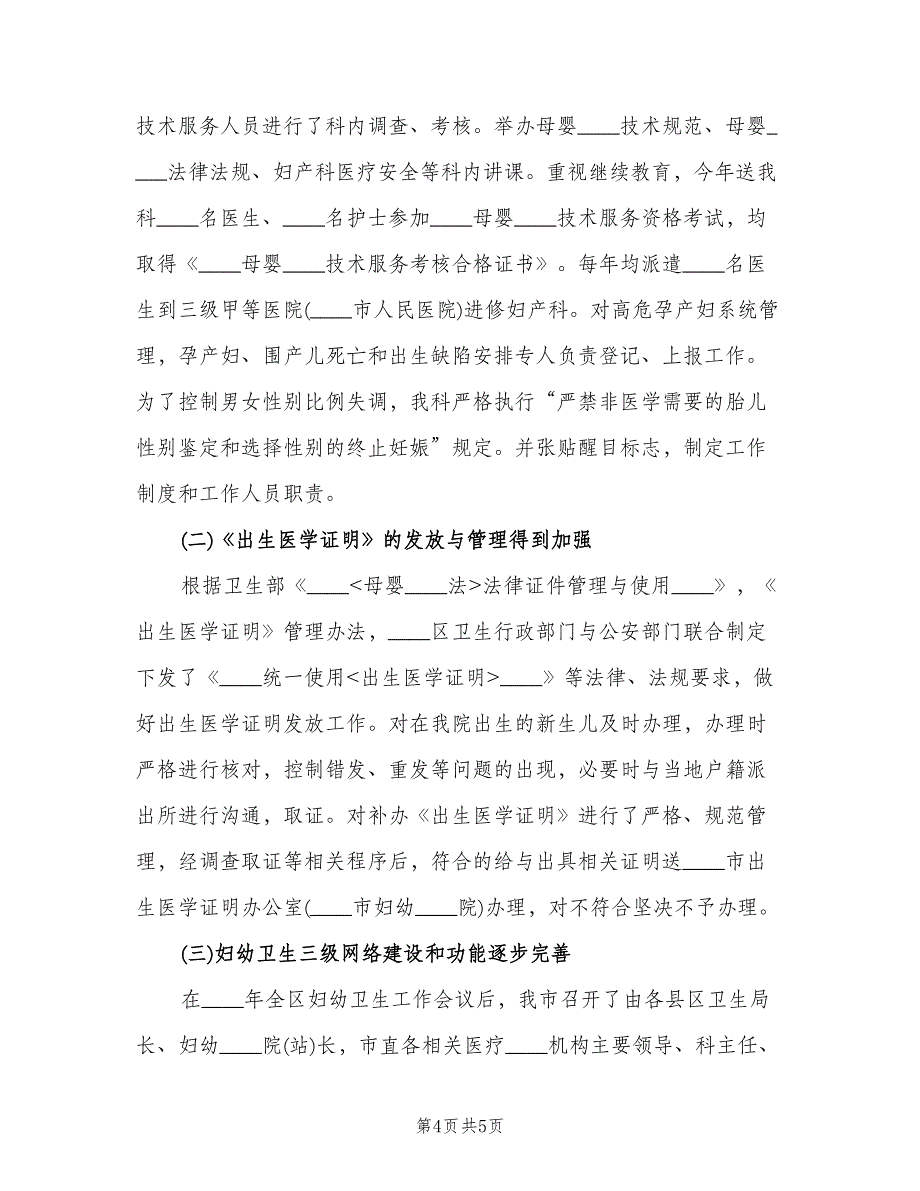 技术服务人员进行了科内调查、考核。举办母婴____技术规范、母婴_
___法律法规、妇产科医疗安全等科内讲课。重视继续教育，今年送我
科____名医生、____名护士参加____母婴____技术服务资格考试，均
取得《____母婴____技术服务考核合格证书》。每年均派遣____名医
生到三级甲等医院(____市人民医院)进修妇产科。对高危孕产妇系统管
理，孕产妇、围产儿死亡和出生缺陷安排专人负责登记、上报工作。
为了控制男女性别比例失调，我科严格执行“严禁非医学需要的胎儿
性别鉴定和选择性别的终止妊娠”规定。并张贴醒目标志，制定工作
制度和工作人员职责。
(二)《出生医学证明》的发放与管理得到加强
根据卫生部《____<母婴____法>法律证件管理与使用____》，《
出生医学证明》管理办法，____区卫生行政部门与公安部门联合制定
下发了《____统一使用<出生医学证明>____》等法律、法规要求，做
好出生医学证明发放工作。对在我院出生的新生儿及时办理，办理时
严格进行核对，控制错发、重发等问题的出现，必要时与当地户籍派
出所进行沟通，取证。对补办《出生医学证明》进行了严格、规范管
理，经调查取证等相关程序后，符合的给与出具相关证明送____市出
生医学证明办公室(____市妇幼____院)办理，对不符合坚决不予办理。
(三)妇幼卫生三级网络建设和功能逐步完善
在____年全区妇幼卫生工作会议后，我市召开了由各县区卫生局
长、妇幼____院(站)长，市直各相关医疗____机构主要领导、科主任、
第4页 共5页